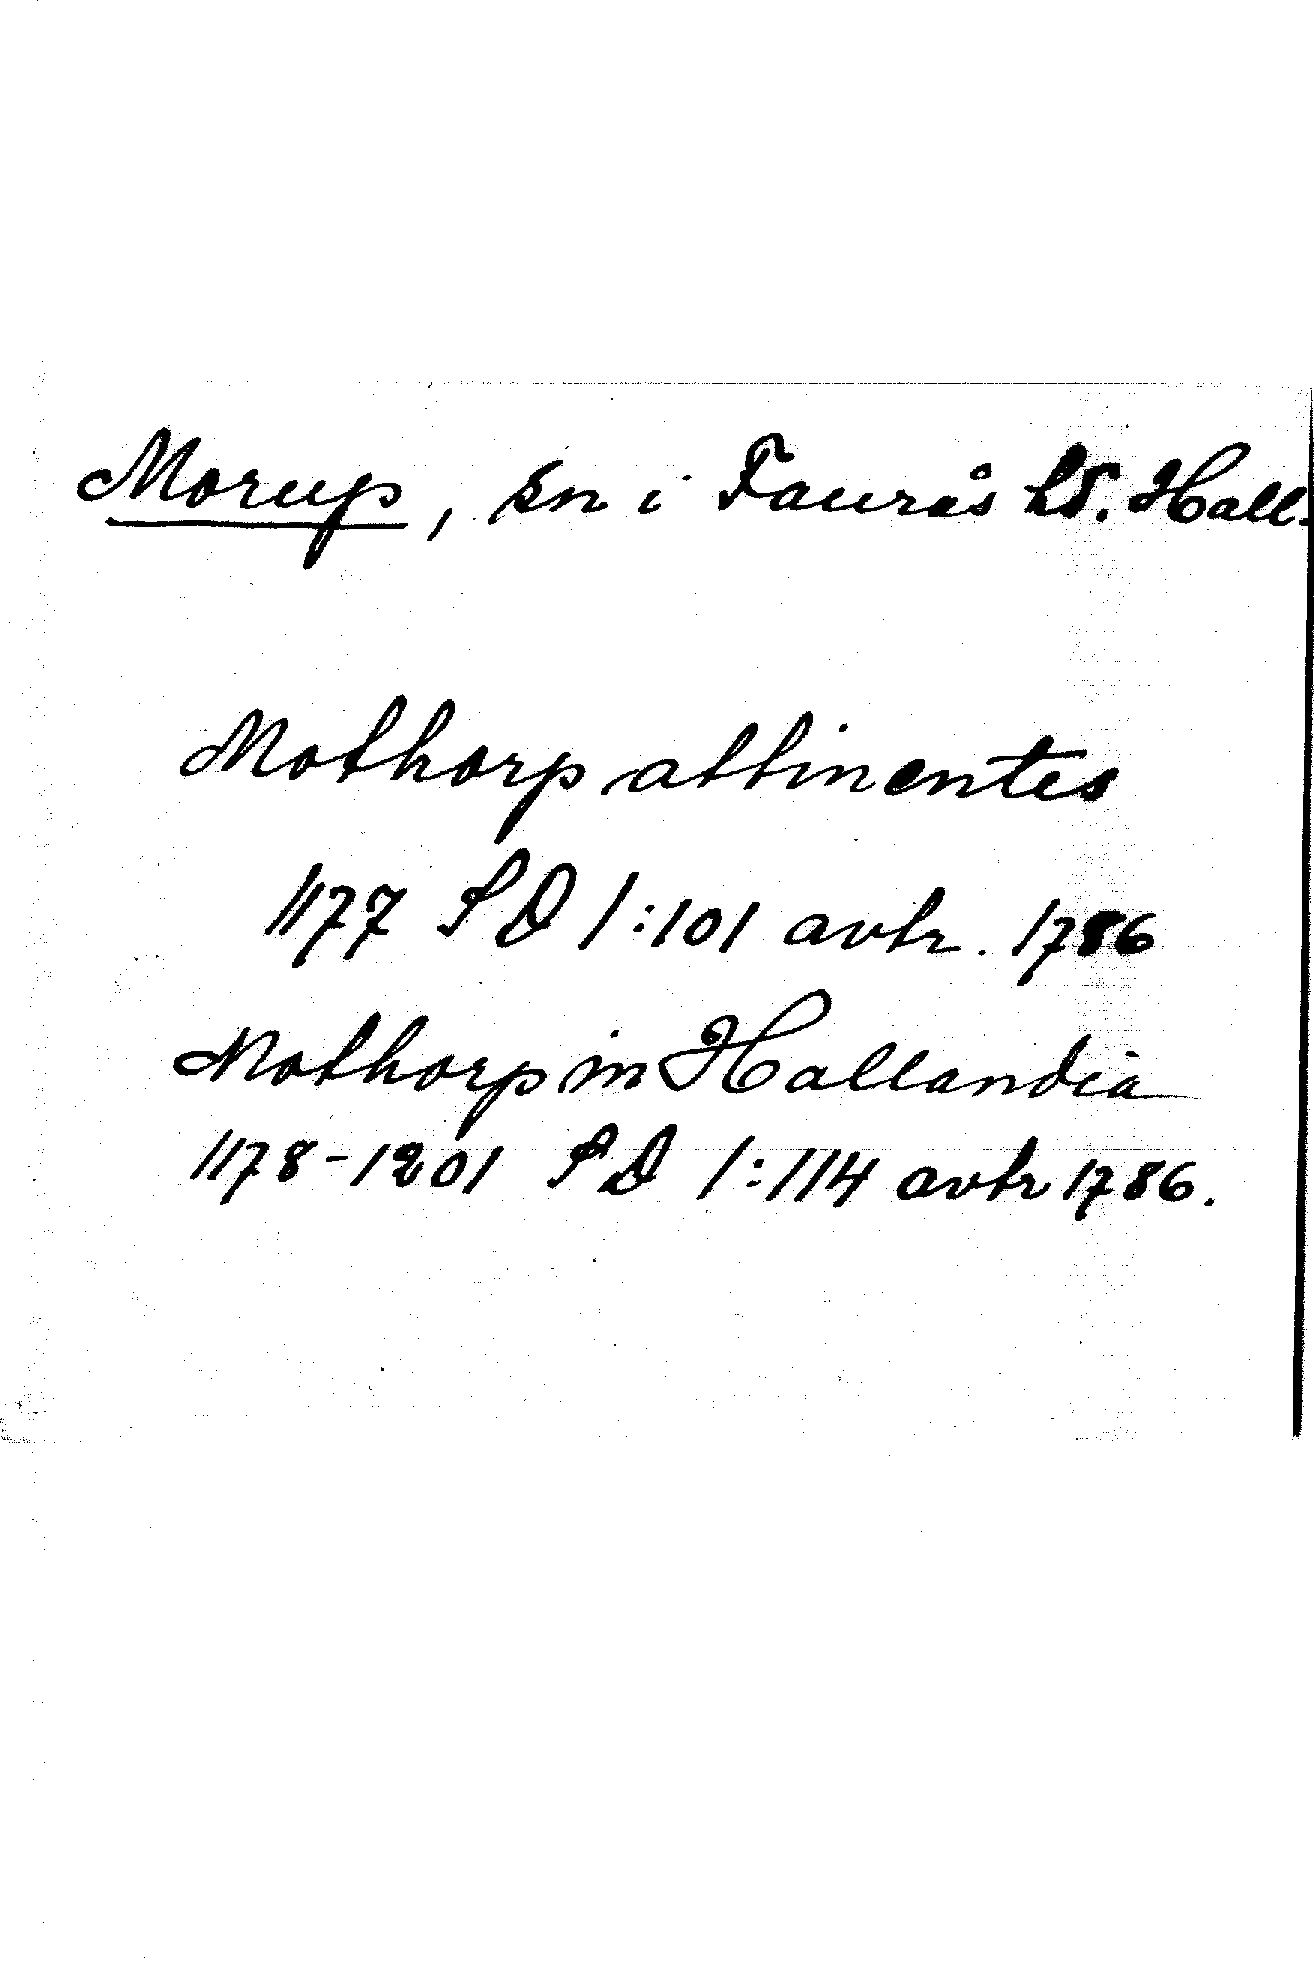 Morup, sn i Faurås hd. Hall.
Mothorp attinentes
1177 SD 1:101 avtr. 1786
Mothorp in Hallandia
1178-1201 SD 1:114 avtr 1786.